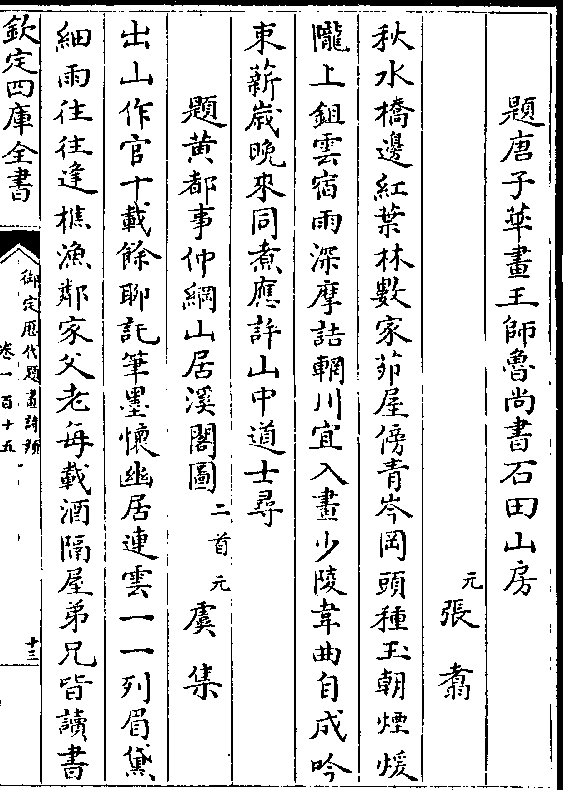 題唐子華畫王師魯尚書石田山房
元 張翥
秋水橋邊紅葉林數家茆屋傍青岑岡頭種玉朝煙煖
隴上鉏雲宿雨深摩詰輞川宜入畫少陵韋曲自成吟
束薪歲晚來同煮應許山中道士尋
題黃都事仲綱山居溪閣圖 二首 元 虞集
出山作官十載餘聊託筆墨懷幽居連雲一一列眉黛
細雨往往逢樵漁鄰家父老每載酒隔屋弟兄皆讀書
欽定四庫全書
御定厯代題畫詩類
卷一百十五
十三